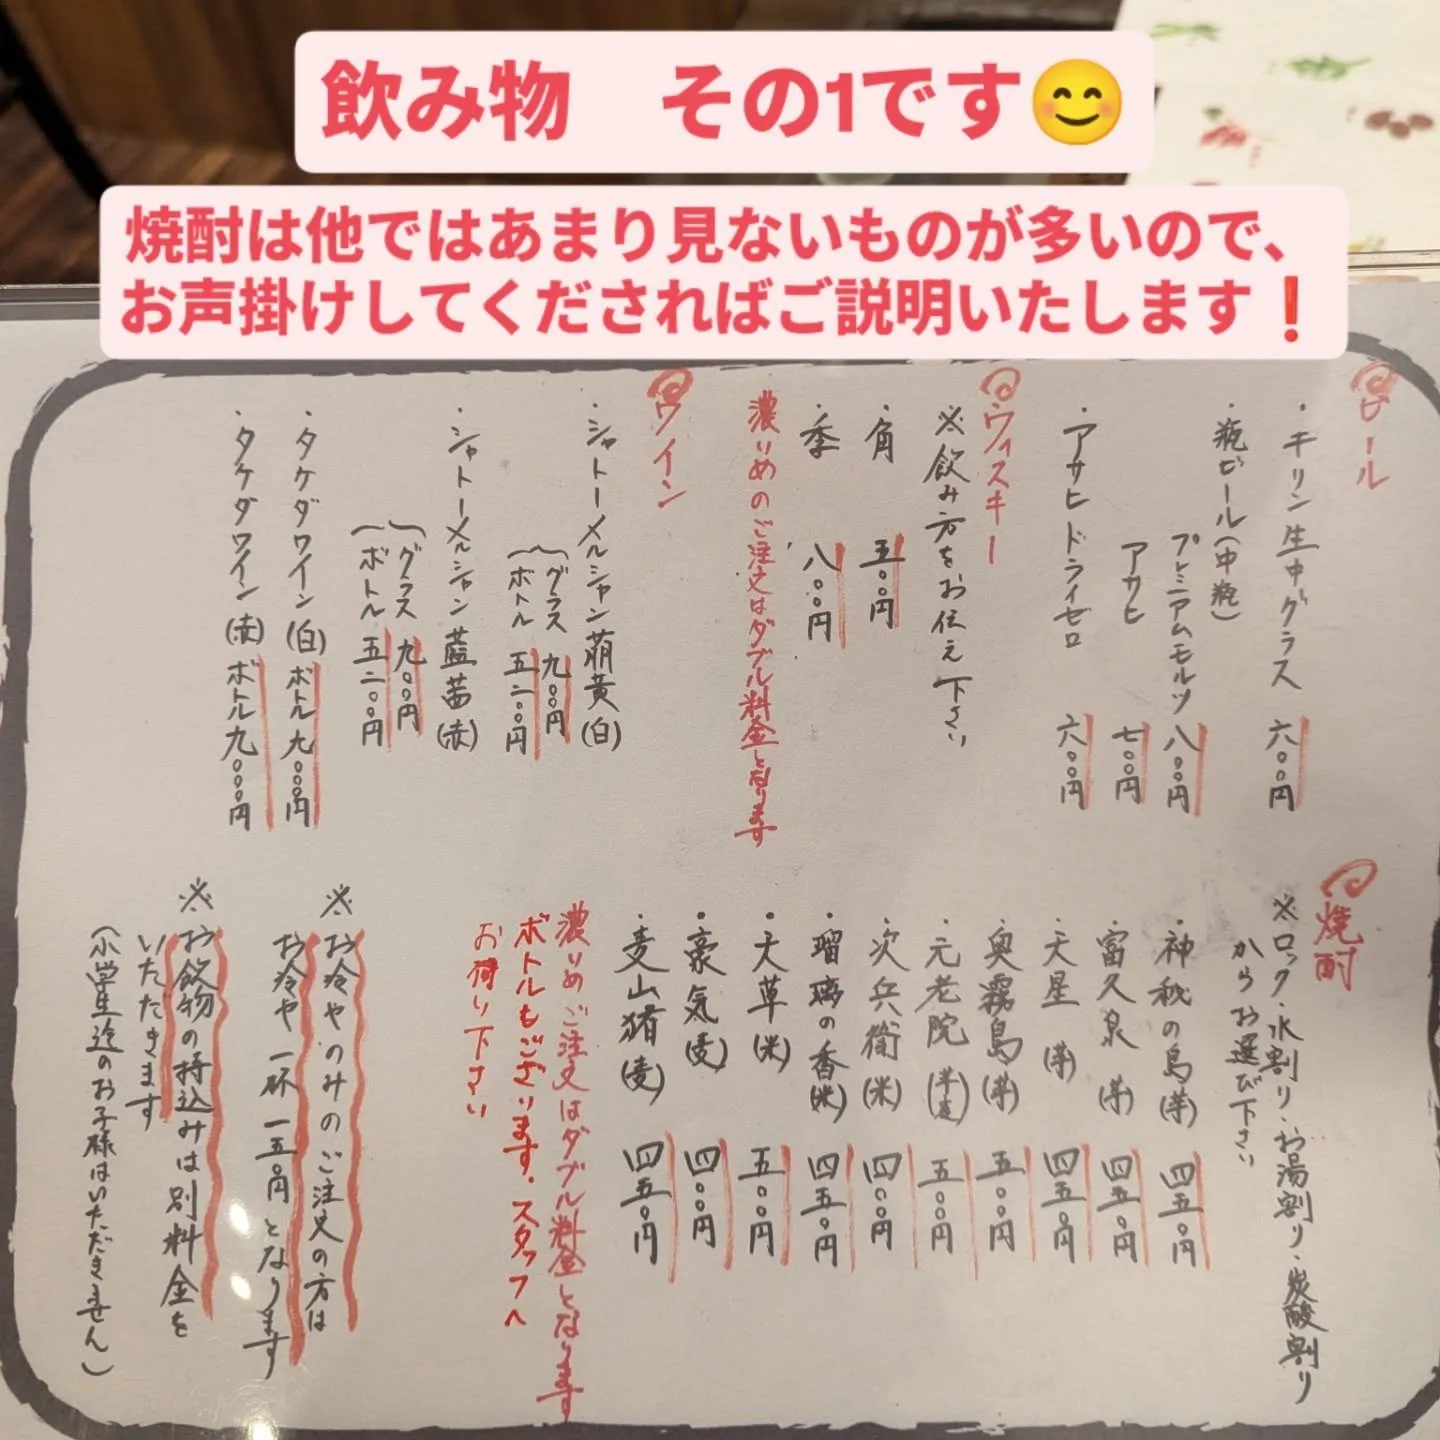 飲み物　その1です😊
焼酎は他ではあまり見ないものが多いので、
お声掛けしてくださればご説明いたします❗
ビール
・キリン生中グラス 六〇〇円
・瓶ビール(中瓶)
プレミアムモルツ 八〇〇円
アサヒ 七〇〇円
・アサヒドライゼロ 六〇〇円
ウィスキー
※飲み方をお伝え下さい
・角 五〇〇円
・季 八〇〇円
濃いめのご注文はダブル料金となります
ワイン
・シャトーメルシャン萌黄(白)
グラス 九〇〇円
ボトル 五二〇〇円
・シャトーメルシャン藍茜(赤)
グラス 九〇〇円
ボトル 五二〇〇円
・タケダワイン(白) ボトル九〇〇〇円
・タケダワイン(赤) ボトル九〇〇〇円
焼酎
※ロック・水割り・お湯割り・炭酸割り
からお選び下さい
・神秘の島(芋) 四五〇円
・富久泉(芋) 四五〇円
・天星(芋) 四五〇円
・奥霧島(芋) 五〇〇円
・元老院(芋麦) 五〇〇円
・次兵衛(米) 四〇〇円
・瑠璃の香(米) 四五〇円
・天草(米) 五〇〇円
・豪気(麦) 四〇〇円
・麦山猪(麦) 四五〇円
濃いめご注文はダブル料金となります
ボトルもございます。スタッフへ
お伺い下さい
※お冷やのみのご注文の方は
お冷や一杯一五〇円となります
※お飲物の持込みは別料金を
いただきます
(小学生迄のお子様はいただきません)